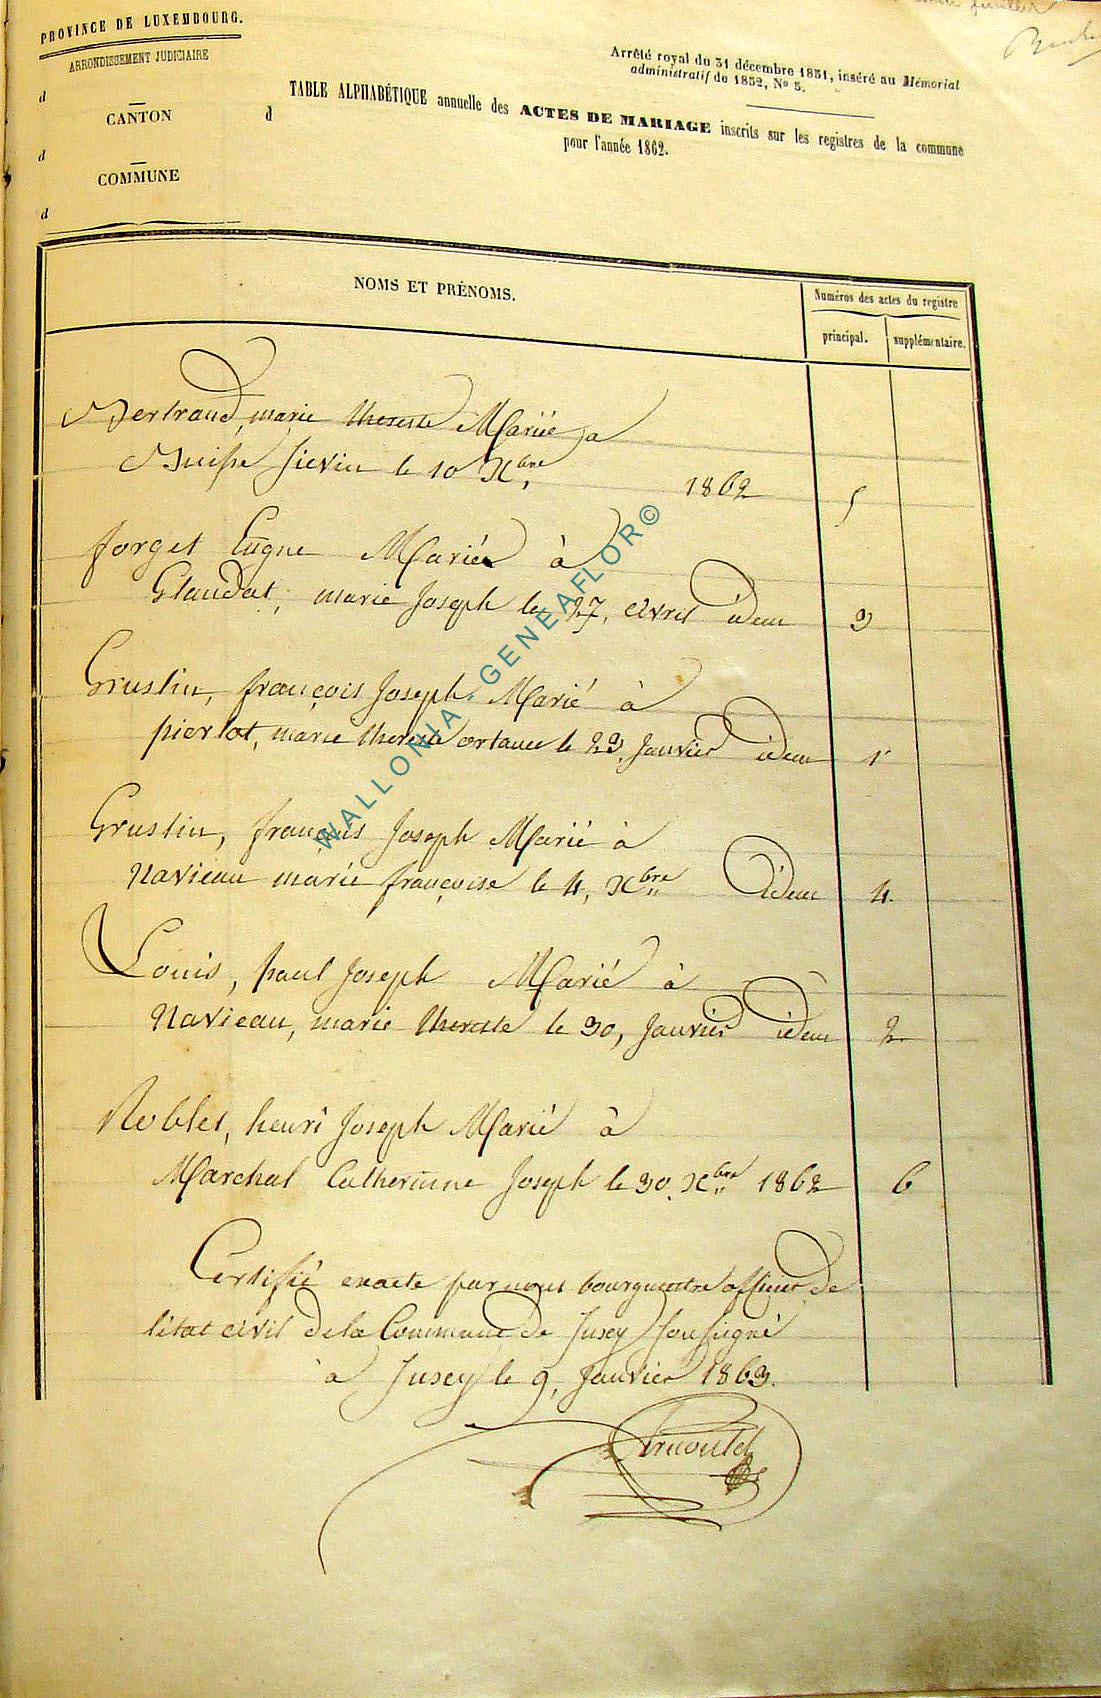 PROVINCE DE LUXEMBOURG.
ARRONDISSEMENT JUDICIAIRE
d
CANTON
d
COMMUNE
d
Arrêté royal du 31 décembre 1851, inséré au Mémorial
administratif de 1852, No 5.
TABLE ALPHABÉTIQUE annuelle des ACTES DE MARIAGE inscrits sur les registres de la commune
d
pour l'année 1862.
NOMS ET PRÉNOMS.
Numéros des actes du registre
principal.
supplémentaire.
Bertrand, marie therese Marié a
le 10 Xbre 1862 5
forget Eugne Mariér à
Glaudat, marie Joseph le 27, avril idem 3
Grustin, françois Joseph Marié à
pierlot, marie therese ortance le 23, Janvier idem 1
Grustin, françois Joseph Marié à
Navieau marie françoise le 4, Xbre idem 4.
Louis, paul Joseph Marié à
Navieau, marie therese le 30, Janvier idem 2
Noblet, henri Joseph Marié à
Marchal Catherinne Joseph le 30, Xbre 1862 6
Certifié exacte par nous bourgmestre officier de
l'état civil de la Commune de Jusey soussigné
à Jusey le 9, Janvier 1863.
WALLONIA GENEAFLOR©